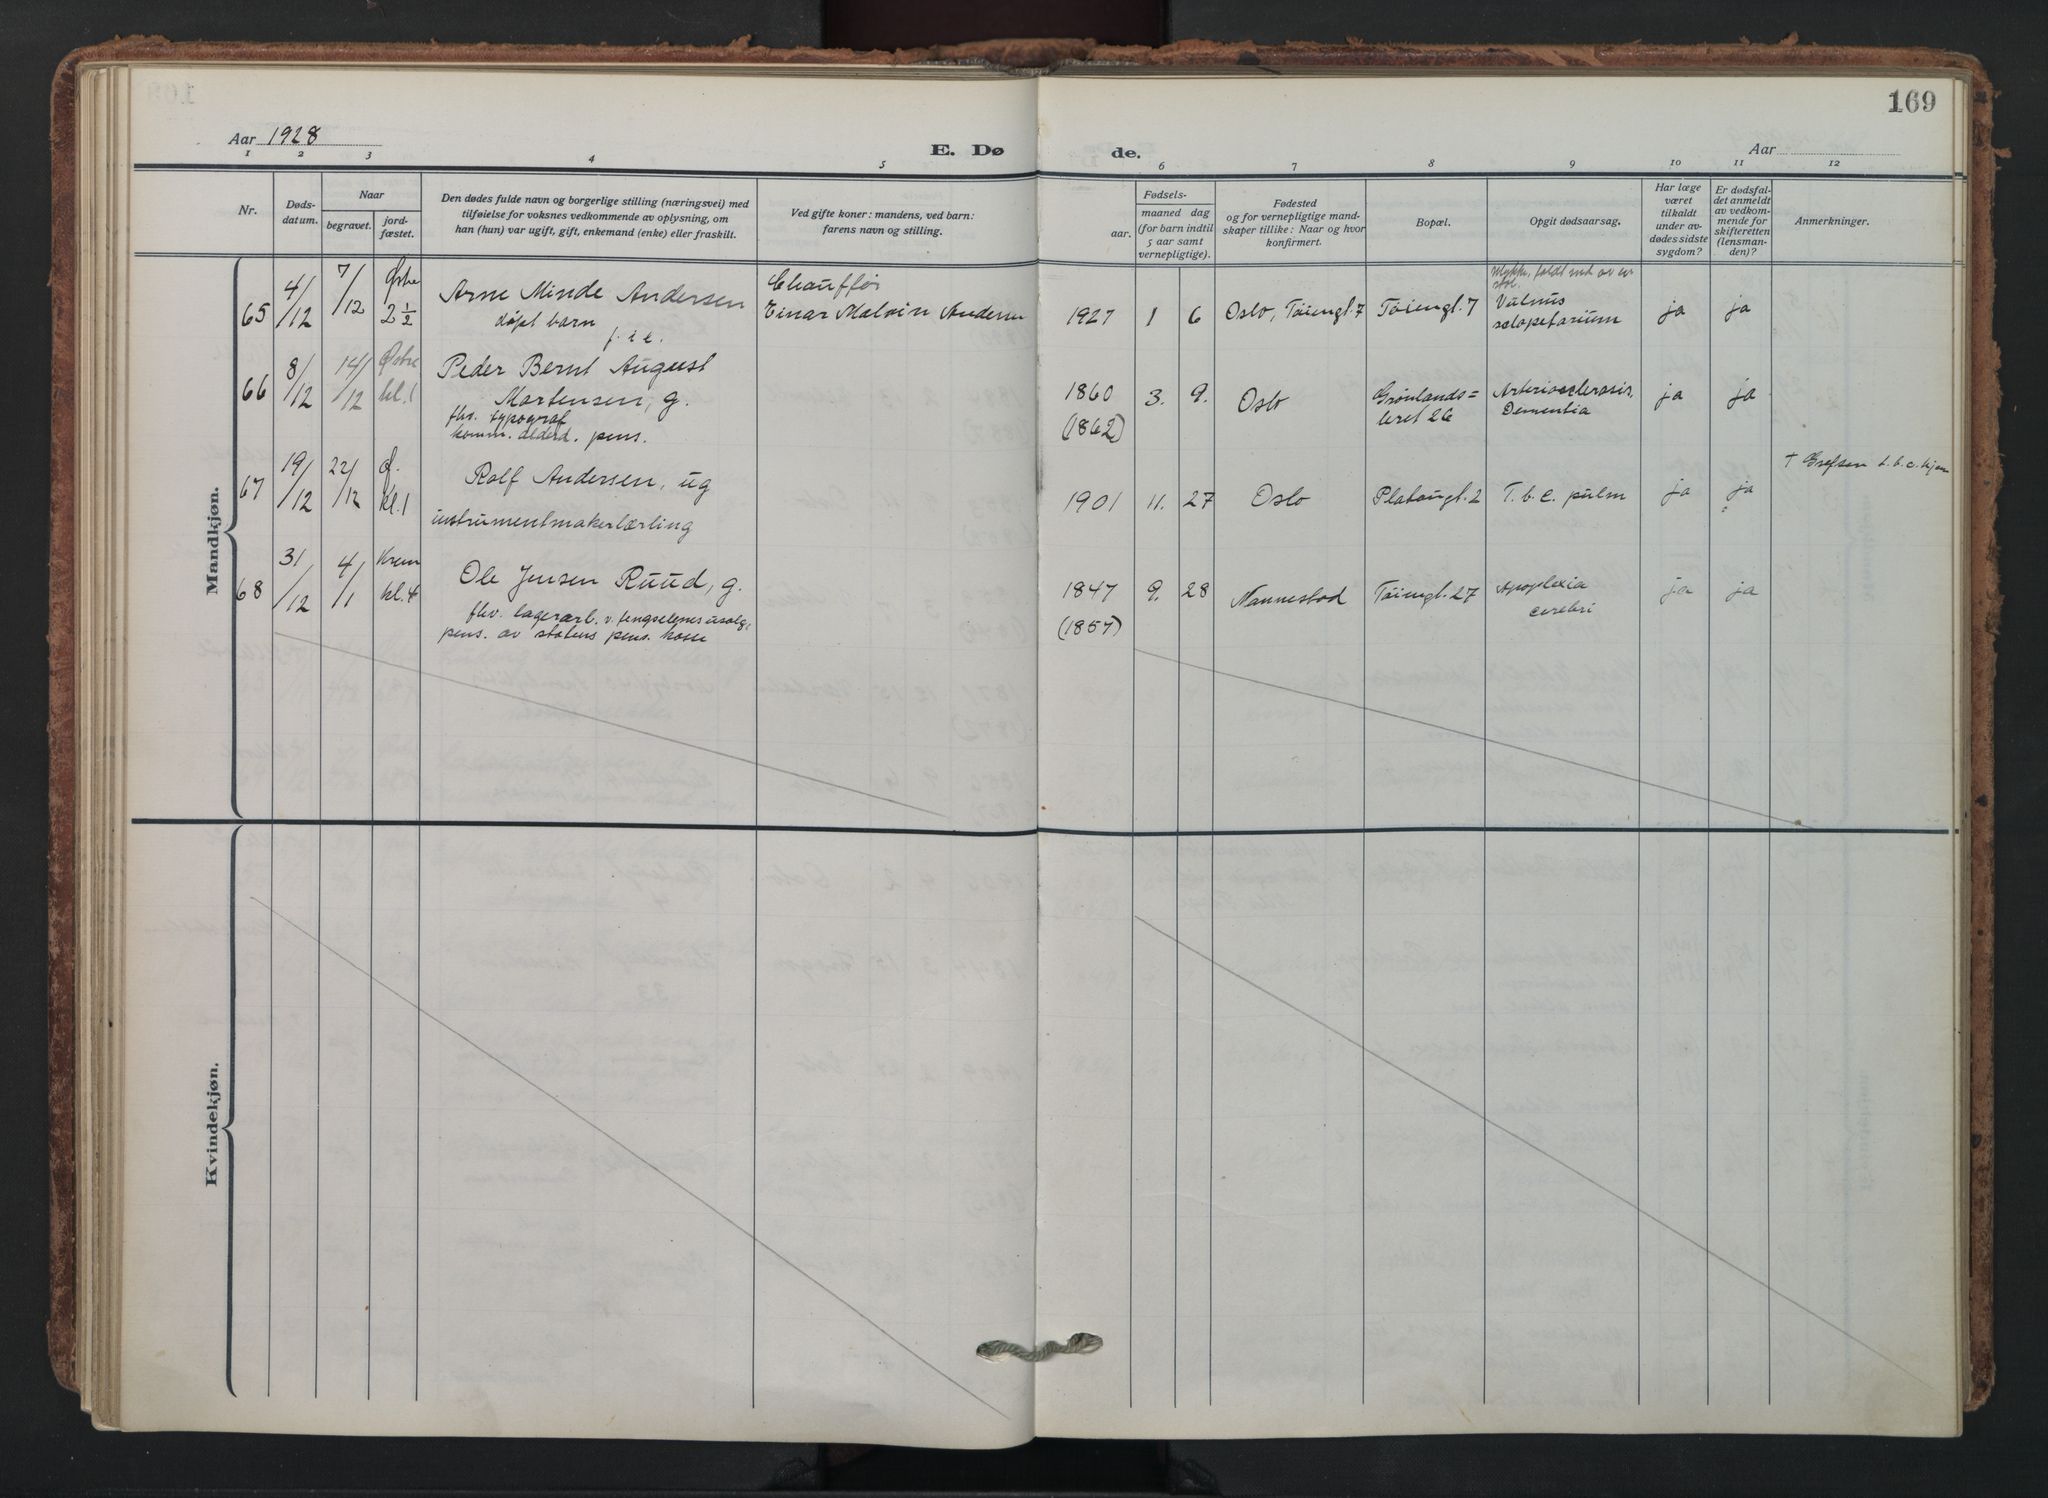 169
Aar 1928
E. Dø
de.
Aar
1 2 3 4 5 6 7 8 9 10 11 12
Nr.
Døds-
datum.
Naar
begravet.
jord-
fæstet.
Den dødes fulde navn og borgerlige stilling (næringsvei) med
tilføielse for voksnes vedkommende av oplysning, om
han (hun) var ugift, gift, enkemand (enke) eller fraskilt.
Ved gifte koner: mandens, ved barn:
farens navn og stilling.
Fødsels-
aar.
maaned dag
(for barn indtil
5 aar samt
vernepligtige).
Fødested
og for vernepligtige mand-
skaper tillike: Naar og hvor
konfirmert.
Bopæl.
Opgit dødsaarsag.
Har læge
været
tilkaldt
under av-
dødes sidste
sygdom?
Er dødsfal-
det anmeldt
av vedkom-
mende for
skifteretten
(lensman-
den)?
Anmerkninger.
Mandkjøn.
65 4/12 7/12 Østre 2½
Arne Minde Andersen
døpt barn
Chauffør
Einar Malvin Andersen
1927 1 6 Oslo, Töiengt. 7 Töiengt. 7
Vulnus
sclopetarium
ja ja
66 8/12 14/12 Østre kl. 1
Peder Bernt August
Martensen, g.
fhv. typograf
komm. alderd. pens.
1860
(1862)
3. 9. Oslo
Grønlands=
leret 26
Arteriosclerosis,
Dementia
ja ja
67 19/12 22/12 Ø. kl. 1
Rolf Andersen, ug
instrumentmakerlærling
1901 11. 27 Oslo Platougt. 2 T. b. c. pulm ja ja
+ Grefsen t. b. c. hjem
68 31/12 4/1 Krem kl. 4
Ole Jensen Ruud, g.
fhv. lagerarb. v. fengselenes utsalg,
pens. av statens pens. kasse
1847
(1857)
9. 28 Nannestad Töiengt. 27
Apoplexia
cerebri
ja ja
Kvindekjøn.